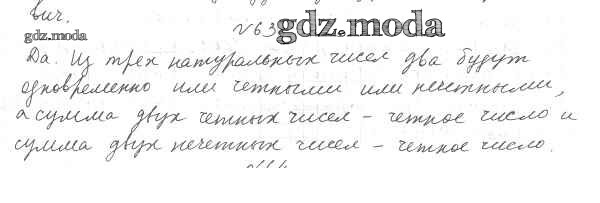 вич.
№63
gdz.moda
gdz.moda
Да. Из трех натуральных чисел два будут
одновременно или четными или нечетными,
а сумма двух четных чисел - четное число и
сумма двух нечетных чисел - четное число.